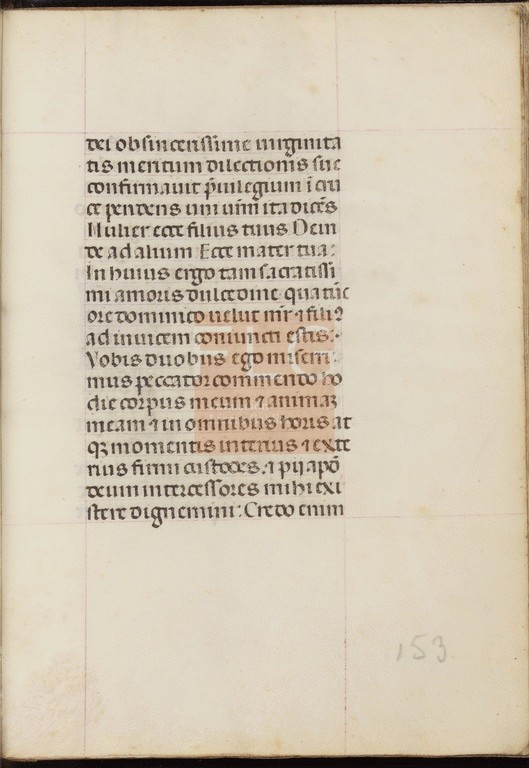 dei ob sincerissime virginita
tis meritum dilectionis sue
confirmavit p̄uilegium ī cru
ce pendens uni uīm ita dicēs
Mulier ecce filius tuus Dein
de ad alium Ecce mater tua:
In huius ergo tam sacratissi
mi amoris dulcedine qua tūc
ore dominico uelut mr̄ ⁊ fili
ad inuicem coniuncti estis:
Vobis duobus ego miserri
mus peccator commendo ho
die corpus meum ⁊ animaꝫ
meam ⁊ in omnibus horis at
qꝫ momentis interius ⁊ exte
rius firmi custodes. ⁊ pij apō
deum intercessores mihi exi
stere dignemini: Credo enim
153